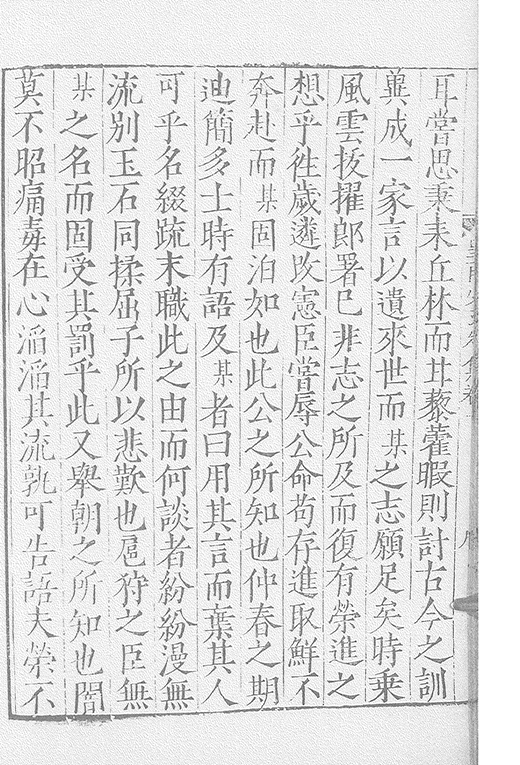 耳嘗思秉耒丘林而甘藜藿暇則討古今之訓
冀成一家言以遺來世而某之志願足矣時乗
風雲拔擢郎署已非志之所及而復有榮進之
想乎徃歲遴敗憲臣嘗辱公命苟存進取鮮不
奔赴而某固泊如也此公之所知也仲春之期
迪簡多士時有語及某者曰用其言而棄其人
可乎名綴疏末職此之由而何談者紛紛漫無
流别玉石同揉屈子所以悲歎也扈狩之臣無
某之名而固受其罰乎此又舉朝之所知也閽
莫不昭痛毒在心滔滔其流孰可告語夫榮不